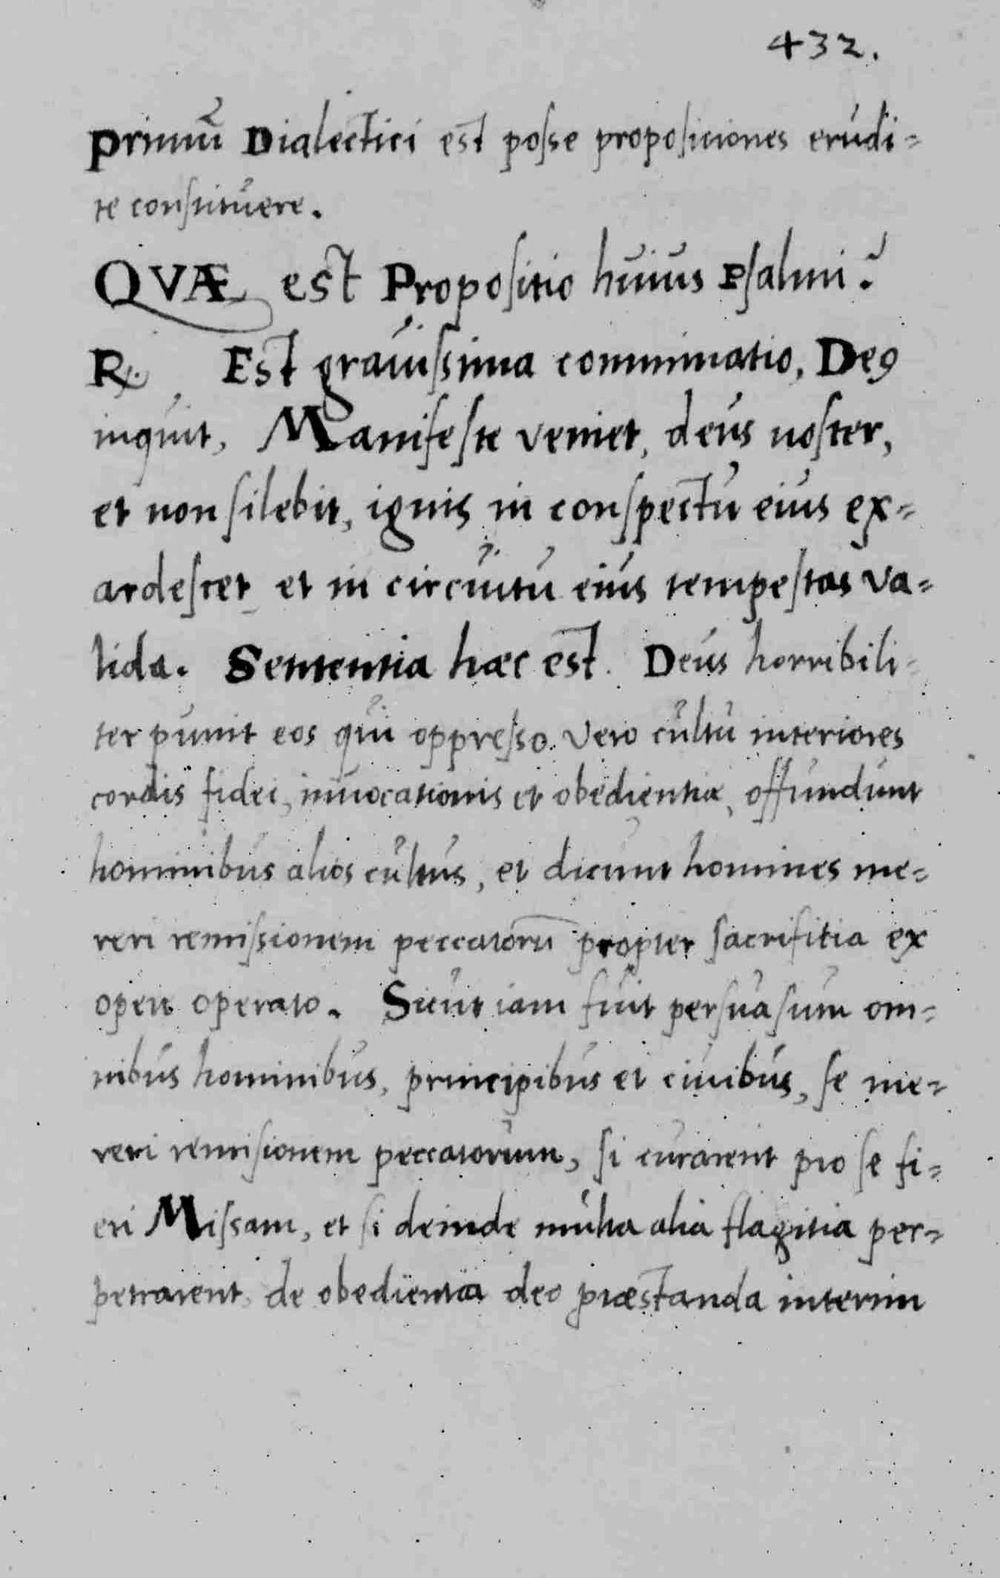 432.
Primũ Dialectici est posse propositiones erudi=
te constituere.
QVÆ est Propositio huius Psalmi?
R. Est grauissima comminatio, Deꝰ
inquit, Manifeste veniet, deus noster,
et non silebit, ignis in conspectu eius ex=
ardescet et in circuitu eius tempestas va=
lida. Sententia hæc est. Deus horribili=
ter punit eos qui oppresso vero cultu interiores
cordis fidei, inuocationis et obedientiæ, offundunt
hominibus alios cultus, et dicunt homines me=
reri remissionem peccatorũ propter sacrifitia ex
opere operato. Sicut iam fuit persuasum om=
nibus hominibus, principibus et ciuibus, se me=
reri remisionem peccatorum, si curarent pro se fi=
eri Missam, et si deinde multa alia flagitia per=
petrarent, de obedientia deo præstanda interim